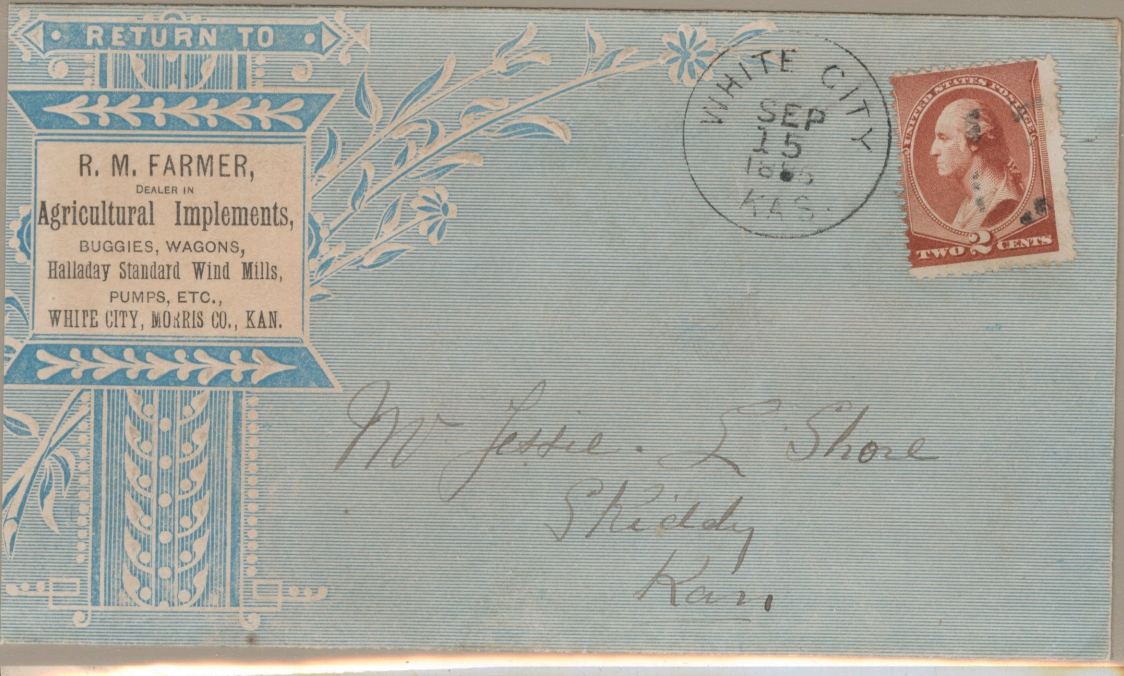 RETURN TO
R. M. FARMER,
DEALER IN
Agricultural Implements,
BUGGIES, WAGONS,
Halladay Standard Wind Mills,
PUMPS, ETC.,
WHITE CITY, MORRIS CO., KAN.
WHITE CITY
SEP
15
KAS.
UNITED STATES POSTAGE
TWO 2 CENTS
Mr Jessie. E Shore
Skiddy
Kan